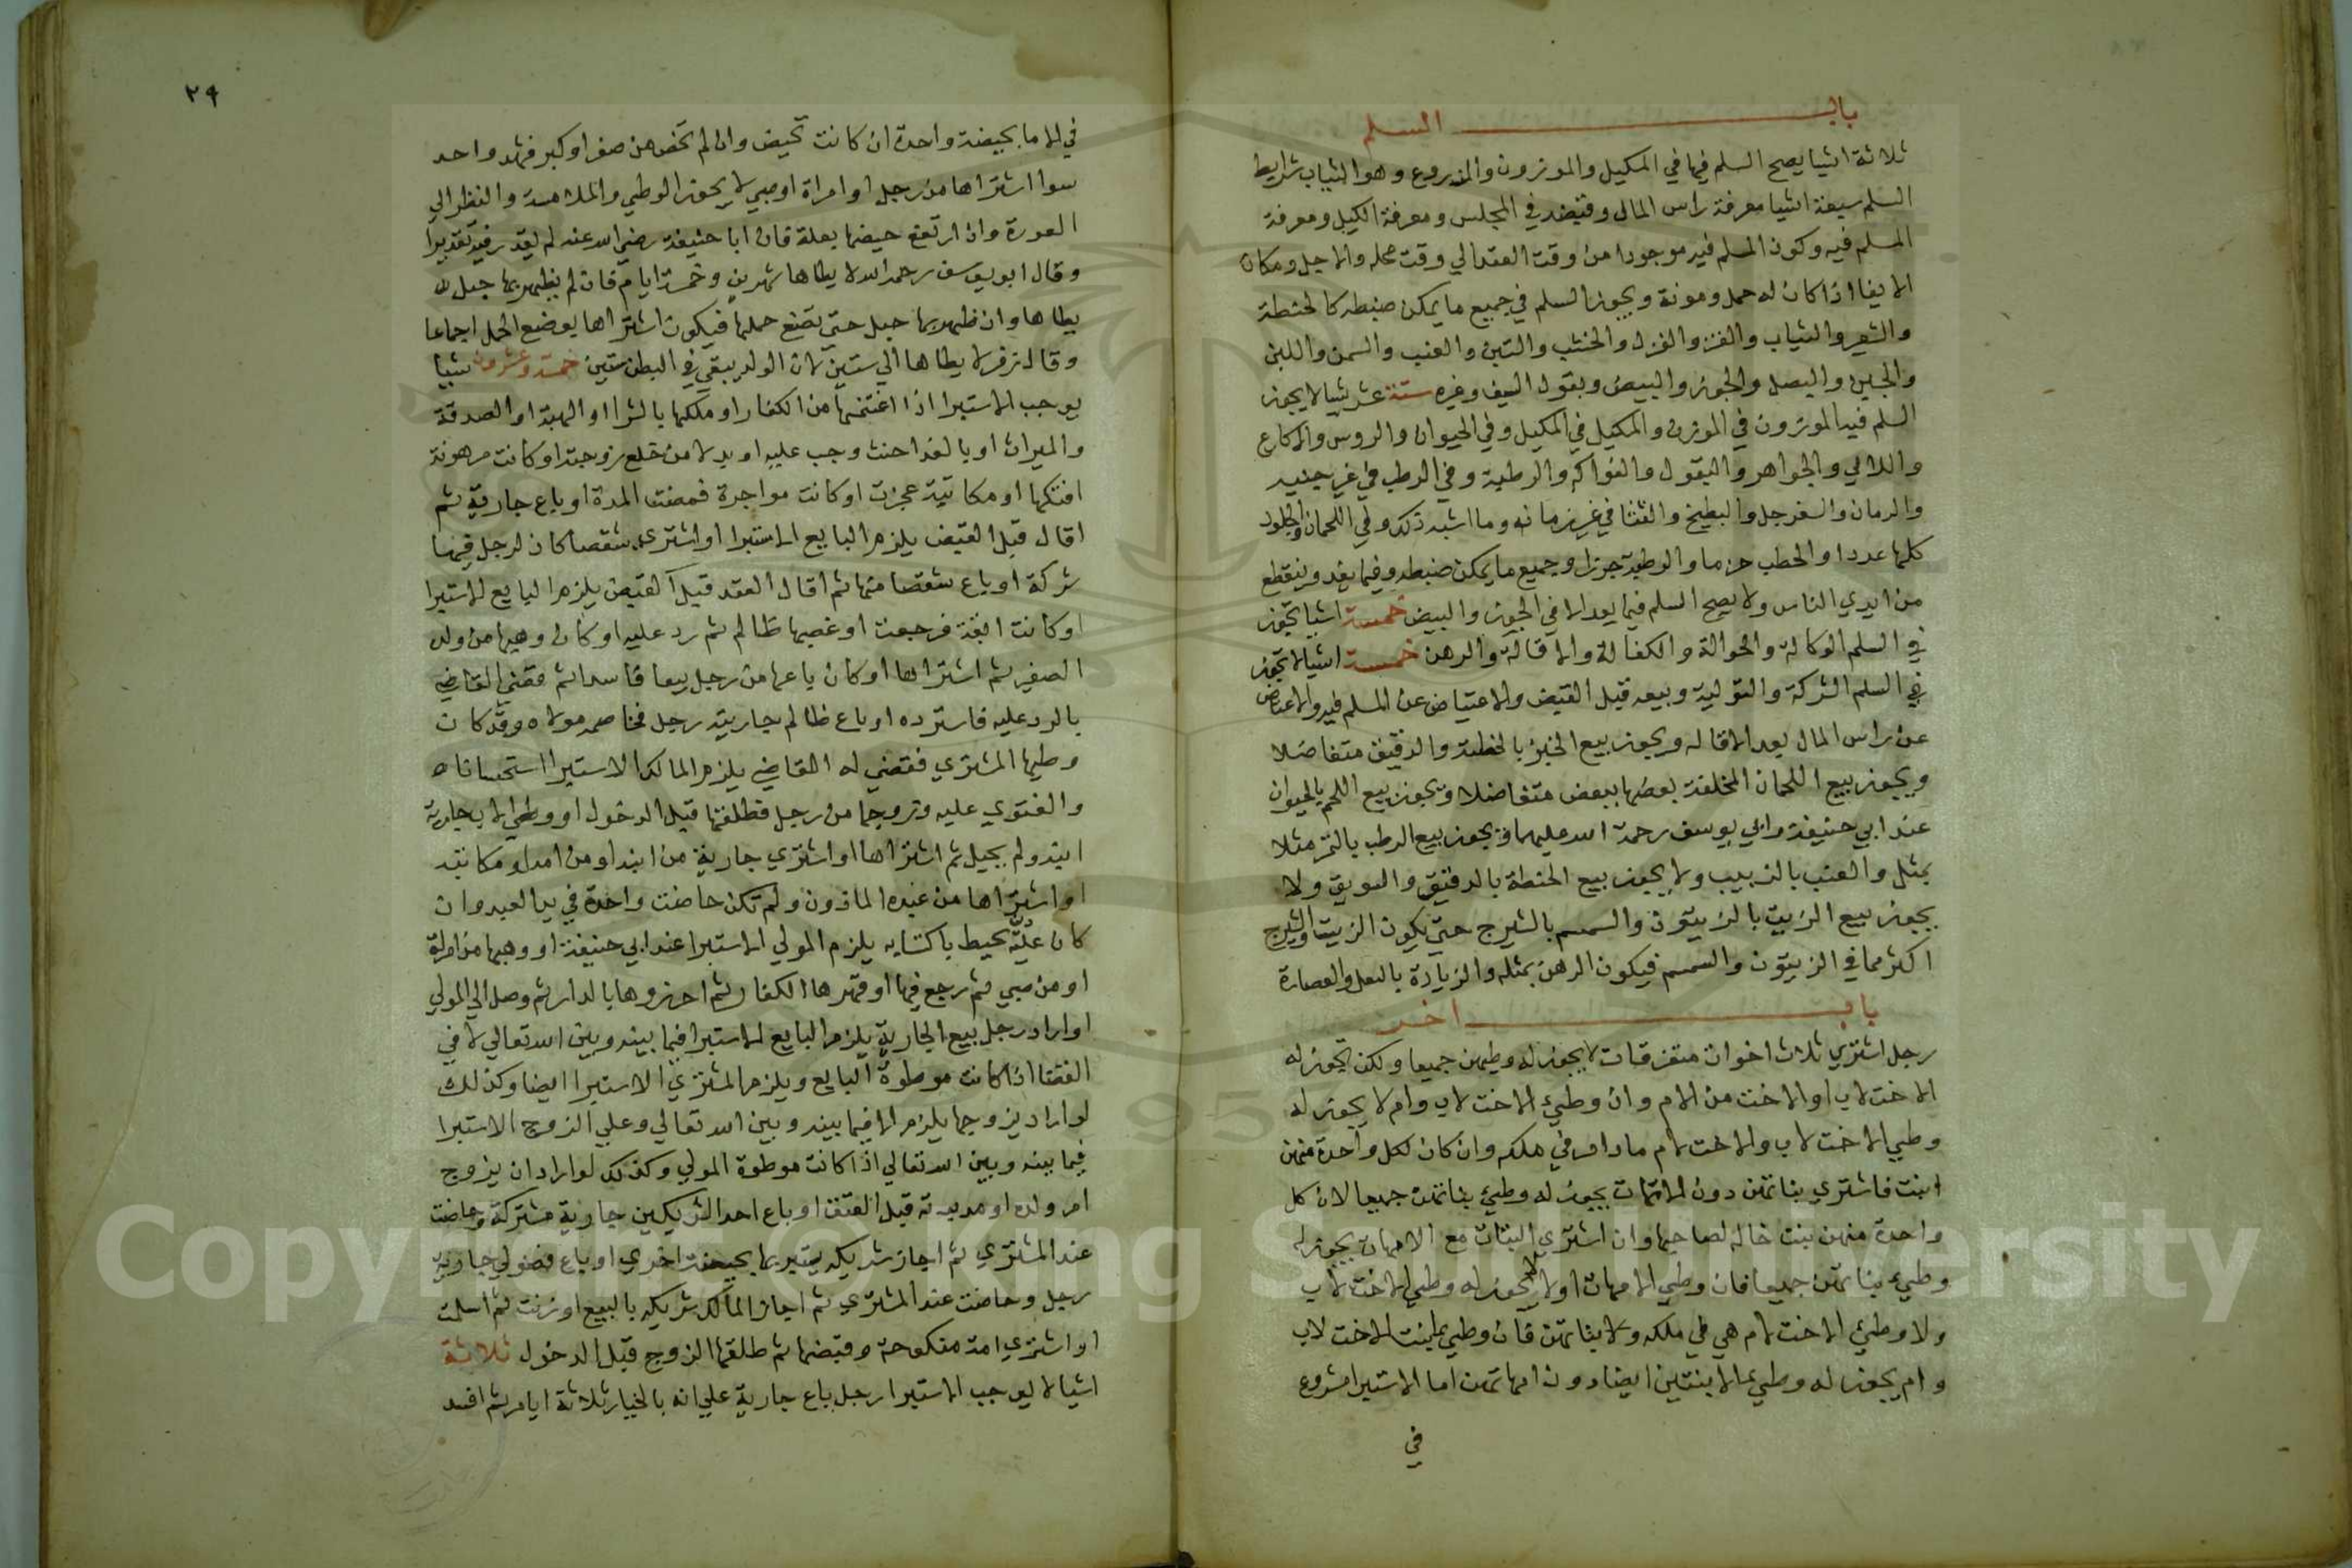 باب السلم
ثلاثة اشيا يصح السلم فيها في المكيل والموزون والمزروع وهو الثياب شرايط
السلم سبعة اشيا معرفة راس المال وقبضه في المجلس ومعرفة الكيل ومعرفة
المسلم فيه وكون المسلم فيه موجودا من وقت العقد الي وقت محله والاجل ومكان
الايفا اذا كان له حمل ومونة ويجوز السلم في جميع ما يمكن ضبطه كالحنطة
والشعير والثياب والقز والغزل والخشب والتين والعنب والسمن واللبن
والجبن والبصل والجوز والبيض وبقول الصيف وغيره ستة عشر شيا لا يجوز
السلم فيه الموزون في الموزون والمكيل في المكيل وفي الحيوان والروس والاكارع
واللالي والجواهر والبقول والفواكه والرطبة وفي الرطب في غير حينه
والرمان والسفرجل والبطيخ والقثا في غير زمانه وما اشبه ذلك وفي اللحمان والجلود
كلها عددا والحطب حزما والرطبة جرزا وجميع ما يمكن ضبطه وفيما يفقد وينقطع
من ايدي الناس ولا يصح السلم فيما يعد الا في الجوز والبيض خمسة اشيا تجوز
في السلم الوكالة والحوالة والكفالة والاقالة والرهن خمسة اشيا لا تجوز
في السلم الشركة والتولية وبيعه قبل القبض والاعتياض عن المسلم فيه والاعتياض
عن راس المال بعد الاقاله ويجوز بيع الخبز بالحنطة والدقيق متفاضلا
ويجوز بيع اللحمان المختلفة بعضها ببعض متفاضلا ويجوز بيع اللحم بالحيوان
عند ابي حنيفة وابي يوسف رحمة الله عليهما ويجوز بيع الرطب بالتمر مثلا
بمثل والعنب بالزبيب ولا يجوز بيع الحنطة بالدقيق والسويق ولا
يجوز بيع الزيت بالزيتون والسمسم بالشيرج حتي يكون الزيت والشيرج
اكثر مما في الزيتون والسمسم فيكون الدهن بمثله والزيادة بالثفل والعصارة
باب اخر
رجل اشتري ثلاث اخوات متفرقات لا يجوز له وطيهن جميعا ولكن يجوز له
الاخت لاب او الاخت من الام وان وطيء الاخت لاب وام لا يجوز له
وطي الاخت لاب والاخت لام مادام في ملكه وان كان لكل واحدة منهن
ابنت فاشتري بناتهن دون الامهات يجوز له وطيء بناتهن جميعا لان كل
واحدة منهن بنت خاله لصاحبها وان اشتري البنات مع الامهات يجوز له
وطيء بناتهن جميعا فان وطي الامهات اولا لا يجوز له وطي الاخت لاب
ولا وطيء الاخت لام هي في ملكه ولا بناتهن فان وطي ابنت الاخت لاب
وام يجوز له وطيء الابنتين ايضا دون امهاتهن اما الاستبرا مشروع
في
٢٩
في الاما بحيضة واحدة ان كانت تحيض وان لم تحض من صغر او كبر فشهر واحد
سوا اشتراها من رجل او امراة او صبي لا يجوز الوطي والملامسة والنظر الي
العورة وان ارتفع حيضها بعلة فان ابا حنيفة رضي الله عنه لم يقدر فيه تقديرا
وقال ابو يوسف رحمه الله لا يطاها شهرين وخمسة ايام فان لم يظهر بها حبل
يطاها وان ظهر بها حبل حتي تضع حملها فيكون اشتراها بوضع الحمل اجماعا
وقال زفر لا يطاها الي سنتين لان الولد يبقي في البطن سنتين خمسة وعشرون شيا
يوجب الاستبرا اذا اغتنمها من الكفار او ملكها بالشرا او الهبة او الصدقة
والميراث او بالفدا حنث وجب عليه او بدلا من خلع زوجته او كانت مرهونة
افتكها او مكاتبة عجزت او كانت مواجرة فمضت المدة او باع جارية ثم
اقال قبل القبض يلزم البايع الاستبرا او اشتري شقصا كان لرجل فيها
شركة او باع شقصا منها ثم اقال العقد قبل القبض يلزم البايع الاستبرا
او كانت ابقة فرجعت او غصبها ظالم ثم رد عليه او كان وهبها من ولده
الصغير ثم اشتراها او كان باعها من رجل بيعا فاسدا ثم قضي القاضي
بالرد عليه فاسترده او باع ظالم جاريته رجل فخاصمه مولاه وقد كان
وطيها المشتري فقضي له القاضي يلزم المالك الاستبرا استحسانا
والفتوي عليه وتزوجها من رجل فطلقها قبل الدخول او وطي الاب جارية
ابنه ولم يحبل ثم اشتراها او اشتري جارية من ابنه او من امه او مكاتبه
او اشتراها من عبده الماذون ولم تكن حاضت واحدة في يد العبد وان
كان عليه يحيط باكسابه يلزم المولي الاستبرا عند ابي حنيفة او وهبها من امراة
او من صبي ثم رجع فيها او قهرها الكفار ثم احرزوها بالدار ثم وصل الي المولي
او اراد رجل بيع الجارية يلزم البايع الاستبرا فيما بينه وبين الله تعالي لا في
القضا اذا كانت موطوة البايع ويلزم المشتري الاستبرا ايضا وكذلك
لو اراد يزوجها يلزم الا فيما بينه وبين الله تعالي وعلي الزوج الاستبرا
فيما بينه وبين الله تعالي اذا كانت موطوة المولي وكذلك لو اراد ان يزوج
ام ولده او مدبرته قبل العتق او باع احد الشريكين جارية مشتركة وحاضت
عند المشتري ثم اجاز شريكه يستبريها بحيضة اخري او باع فضولي جارية
رجل وحاضت عند المشتري ثم اجاز المالك شريكه بالبيع او زنت ثم اسلمت
او اشتري امة منكوحة وقبضها ثم طلقها الزوج قبل الدخول ثلاثة
اشيا لا يوجب الاستبرا رجل باع جارية علي انه بالخيار ثلاثة ايام ثم افسد
Copyright © King Saud University